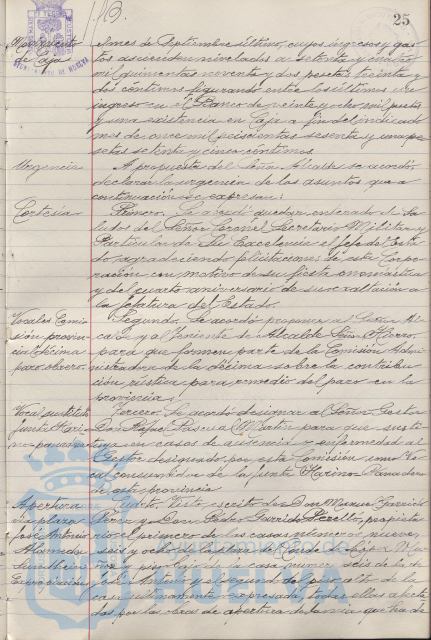 25
Movimiento de Caja
al mes de Septiembre último, cuyos ingresos y gas-
tos ascienden nivelados a setenta y cuatro
mil quinientas noventa y dos pesetas treinta y
dos céntimos figurando entre los últimos un
ingreso en el Banco de veinte y ocho mil pesetas
y una existencia en Caja a fin del indicado
mes de once mil seiscientas sesenta y una pe-
setas setenta y cinco céntimos.
Urgencia
A propuesta del Señor Alcalde se acordó
declarar la urgencia de los asuntos que a
continuación se expresan:
Cortesía
Primero. Se acordó quedar enterado de Sa-
ludos del Señor Coronel Secretario Militar y
Particular de Su Excelencia el Jefe del Esta-
do agradeciendo felicitaciones de esta Corpo-
ración con motivo de su fiesta onomástica
y del cuarto aniversario de su exaltación a
la Jefatura del Estado.
Vocales Comi-
sión provin-
cial Décima
paro obrero.
Segundo. Se acordó proponer al Señor Al-
calde y al Teniente de Alcalde Señor
para que formen parte de la Comisión Admi-
nistradora de la décima sobre la contribu-
ción rústica para remedio del paro en la
provincia.
Vocal sustituto
Junta Hari-
no panadera
Tercero. Se acordó designar al Señor Gestor
Don Rafael Martín para que susti-
tuya en casos de ausencia y enfermedad al
Gestor designado por esta Comisión como Vo-
cal consumidor de la Junta Harino Panadera
de esta provincia.
Apertura
vía plaza
José Antonio
Alameda
Cuarto. Visto escrito de Don Manuel Garrido
Pérez y Don Pedro Garrido Perelló, propieta-
rio el primero de las casas números nueve,
seis y ocho de la
y piso bajo de la casa número seis de la de
José Antonio y el segundo del piso alto de la
casa últimamente expresada, todas ellas afecta-
das por las obras de apertura de la vía que ha de